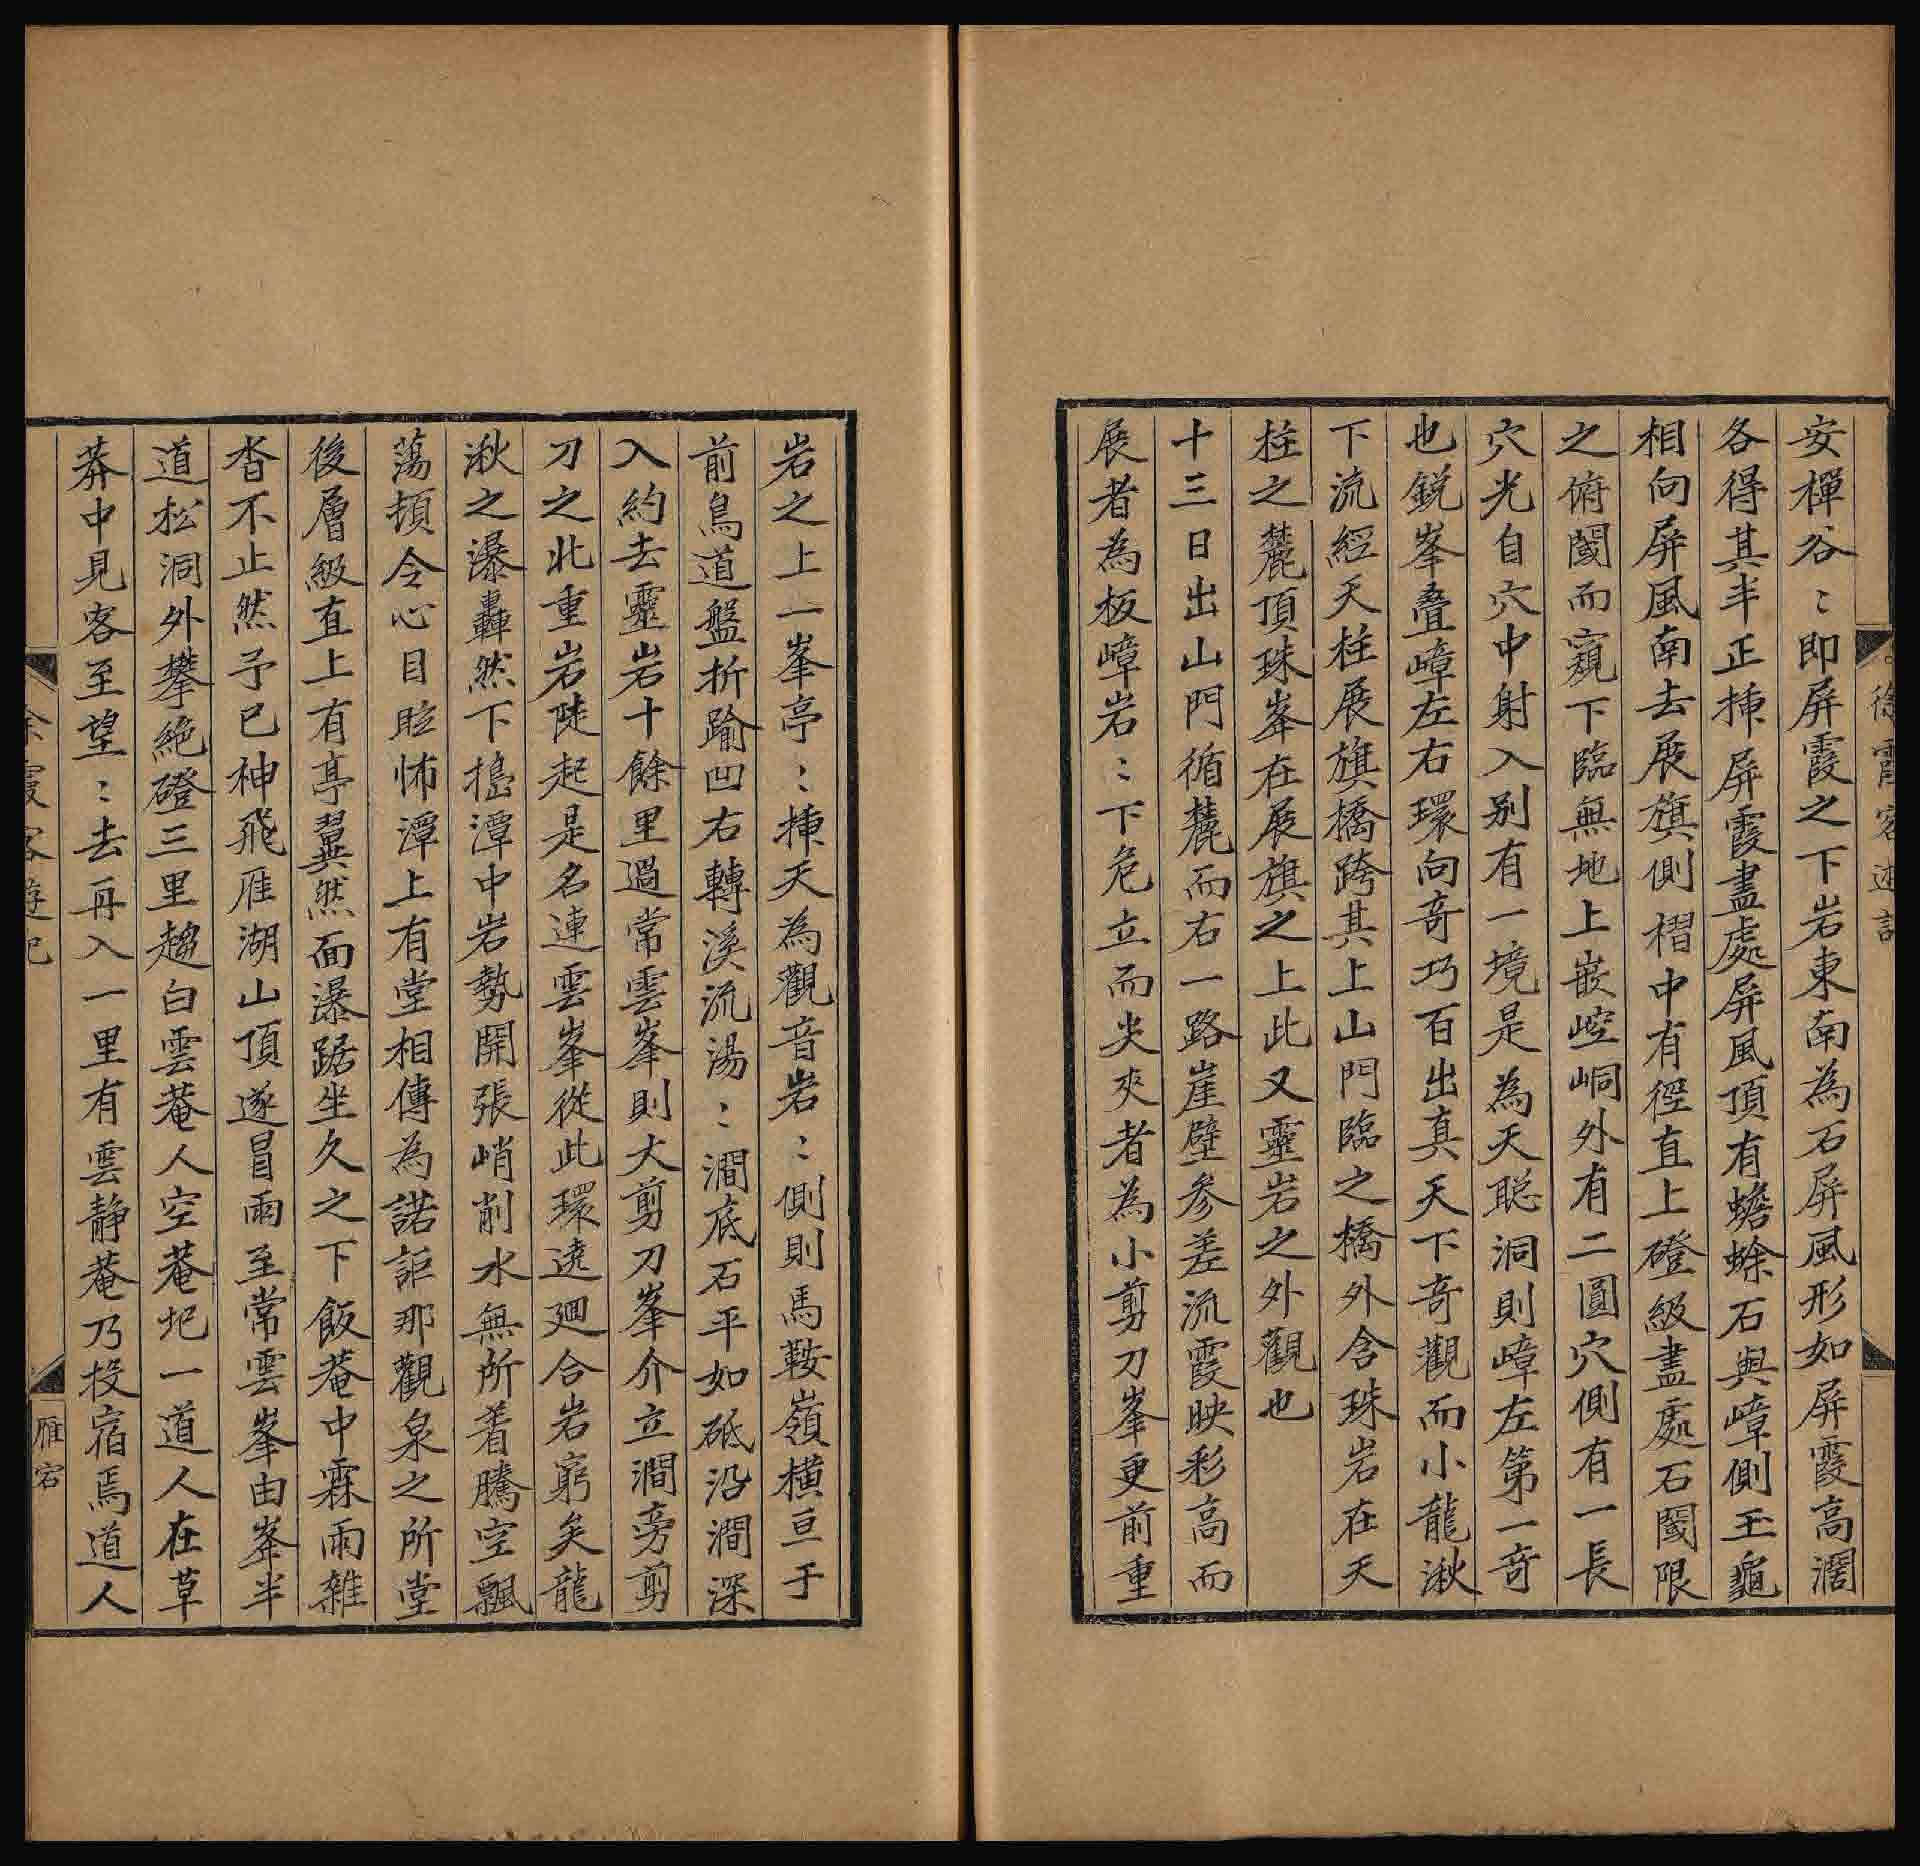 徐霞客遊記
安禪谷〻即屏霞之下岩東南為石屏風形如屏霞高濶
各得其半正揷屏霞盡處屏風頂有蟾蜍石與嶂側玉龜
相向屏風南去展旗側褶中有徑直上磴級盡處石閾限
之俯閾而窺下臨無地上嵌崆峒外有二圓穴側有一長
穴光自穴中射入别有一境是為天聡洞則嶂左第一竒
也銳峯疊嶂左右環向竒巧百出真天下竒觀而小龍湫
下流經天柱展旗橋跨其上山門臨之橋外含珠岩在天
柱之麓頂珠峯在展旗之上此又靈岩之外觀也
十三日出山門循麓而右一路崖壁參差流霞映彩高而
展者為板嶂岩〻下危立而尖夾者為小剪刀峯更前重
岩之上一峯亭〻揷天為觀音岩〻側則馬鞍嶺橫亘于
前鳥道盤折踰凹右轉溪流湯〻澗底石平如砥沿澗深
入約去靈岩十餘里過常雲峯則大剪刀峯介立澗旁剪
刀之北重岩陡起是名連雲峯從此環遶廻合岩窮矣龍
湫之瀑轟然下搗潭中岩勢開張峭削水無所着騰空飄
蕩頓令心目眩怖潭上有堂相傳為諾詎那觀泉之所堂
後層級直上有亭翼然面瀑踞坐久之下飯菴中霖雨雜
杳不止然予已神飛雁湖山頂遂冒雨至常雲峯由峯半
道松洞外攀絶磴三里趨白雲菴人空菴圮一道人在草
莽中見客至望〻去再入一里有雲靜菴乃投宿焉道人
徐霞客遊記
雁宕